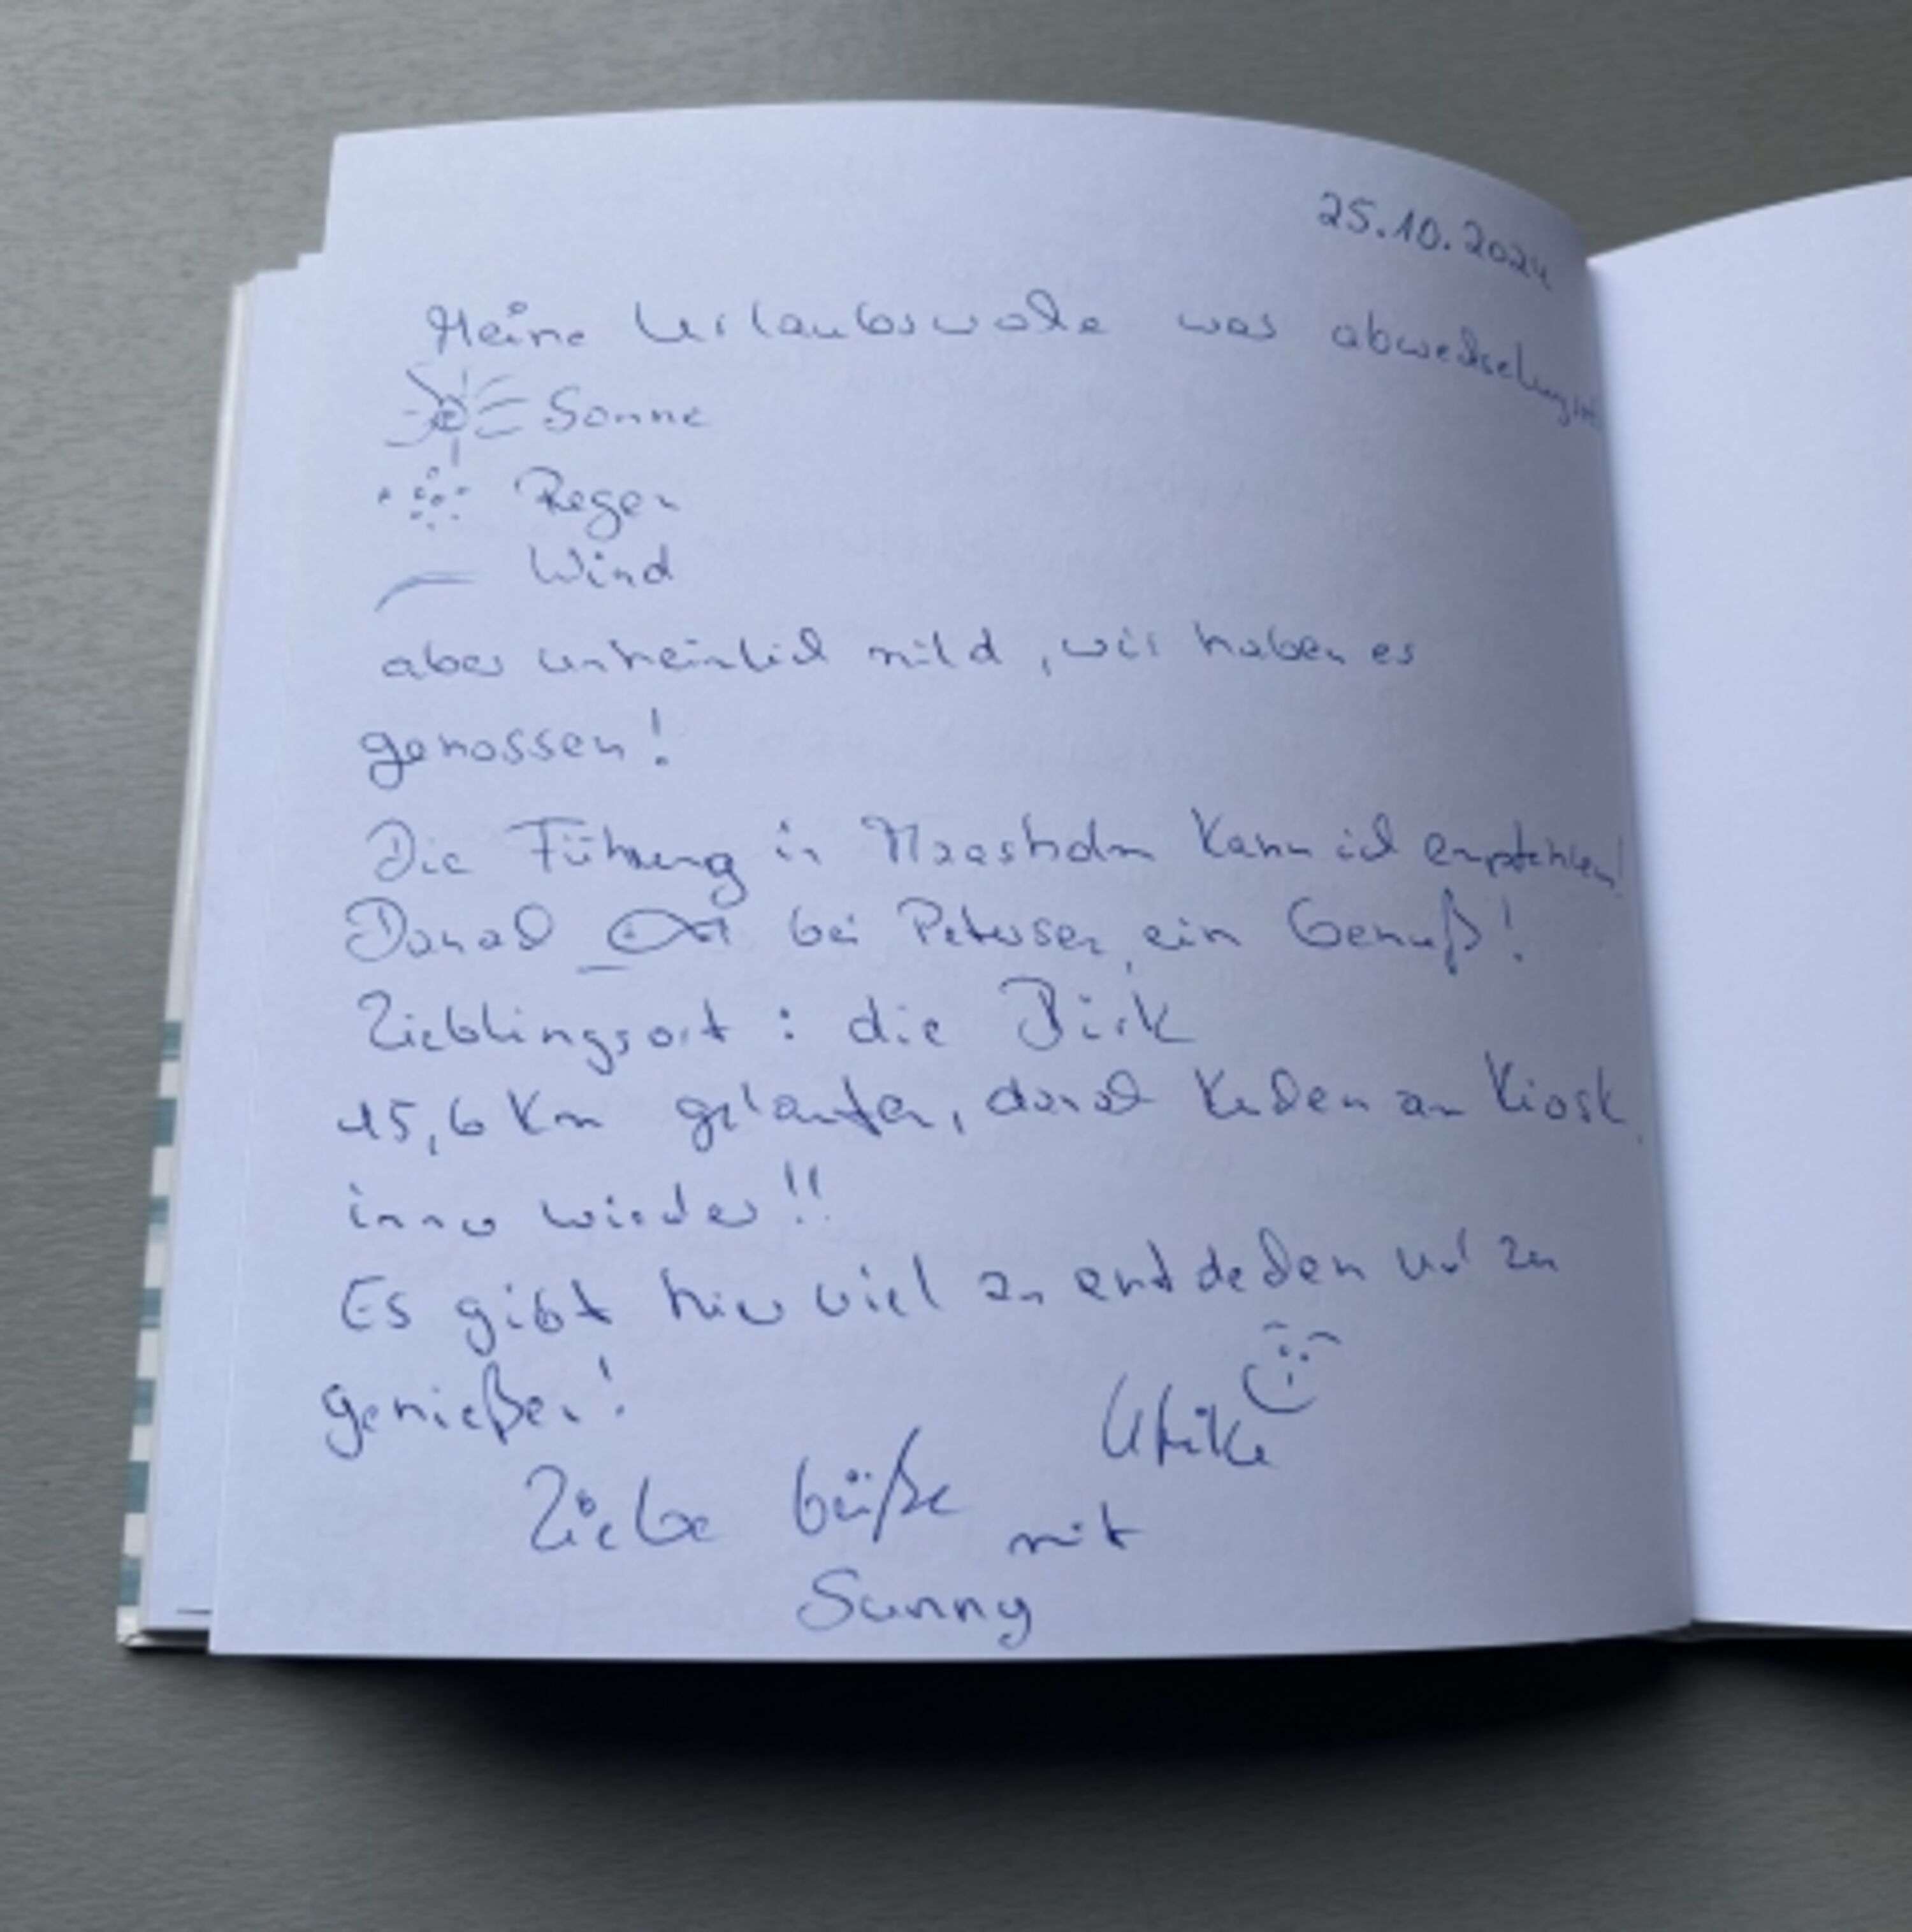 25.10.2024
Meine Urlaubswoche war abwechslungsr
Sonne
Regen
Wind
aber unheimlich mild, wir haben es
genossen!
Die Führung in Maasholm kann ich empfehlen!
Danach bei Petersen, ein Genuß!
Lieblingsort: die Birk
15,6 Km gelaufen, danach Kuchen am Kiosk,
immer wieder!!
Es gibt hier viel zu entdecken und zu
genießen!
Ulrike
Liebe Grüße mit
Sunny